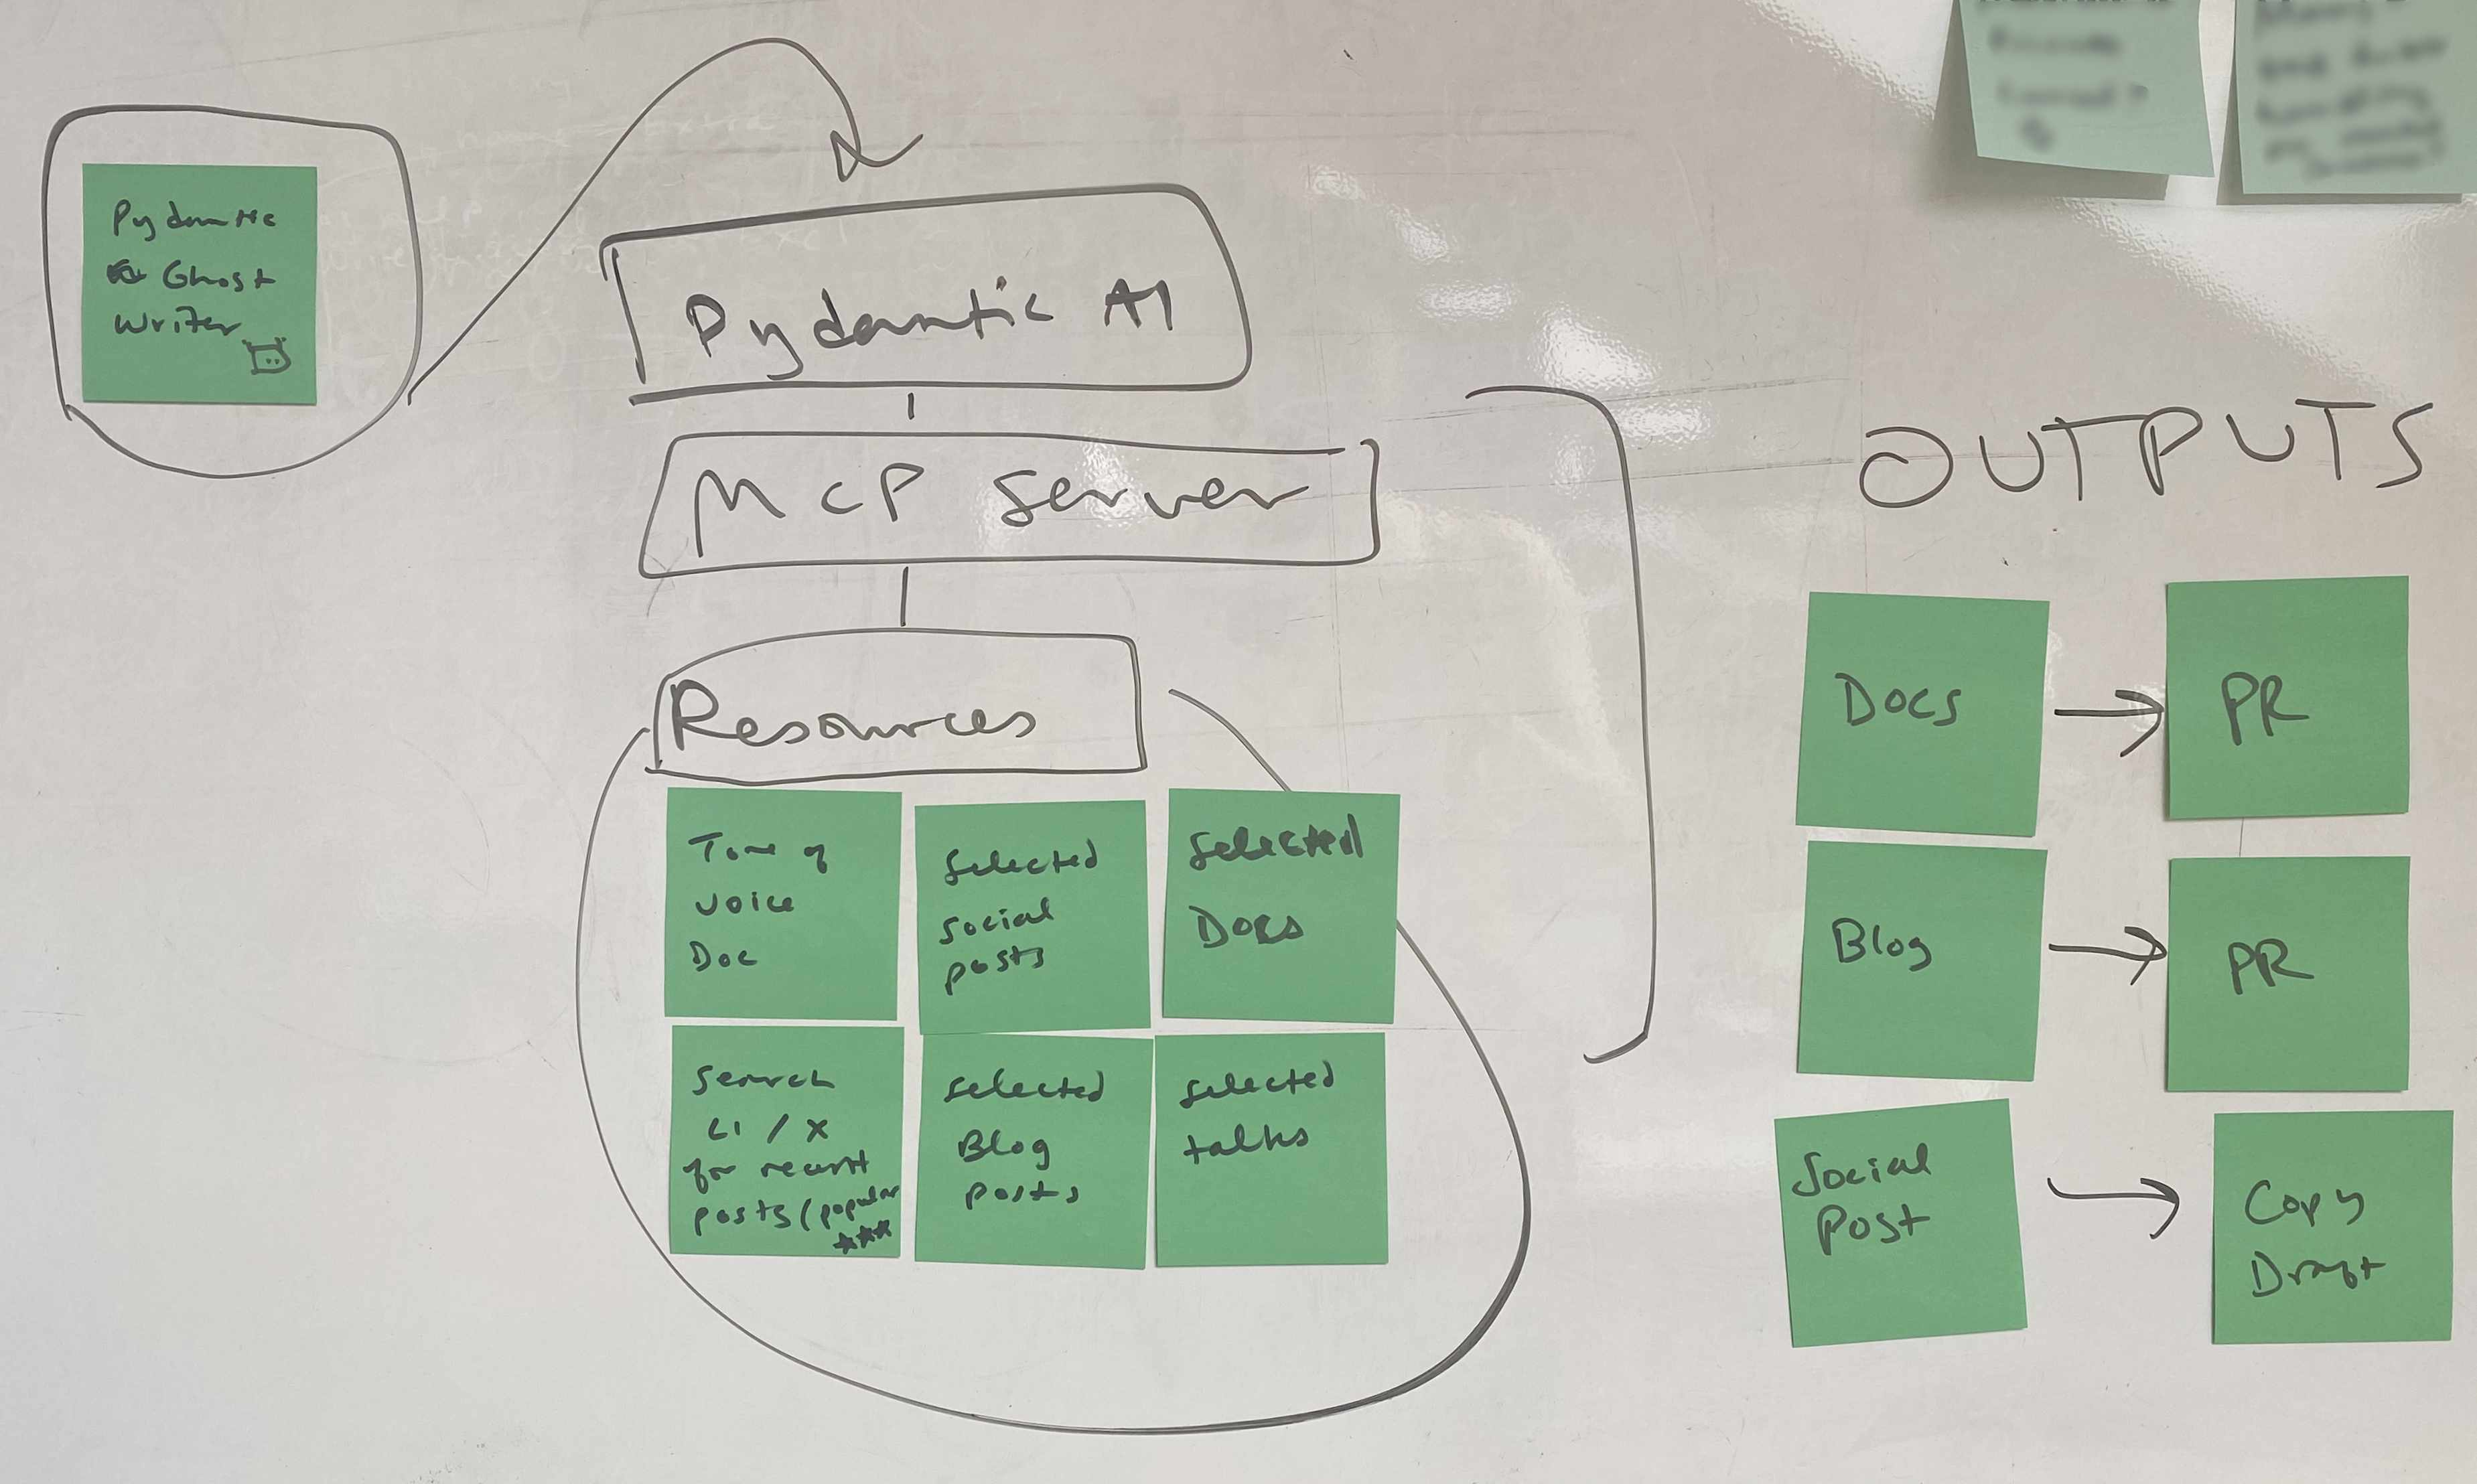 Pydantic
Ghost
Writer
Pydantic AI
MCP Server
Resources
Tone of
Voice
Doc
Selected
Social
posts
Selected
Docs
Search
LI / X
for recent
posts (popular
***
Selected
Blog
posts
Selected
talks
OUTPUTS
Docs
PR
Blog
PR
Social
Post
Copy
Draft